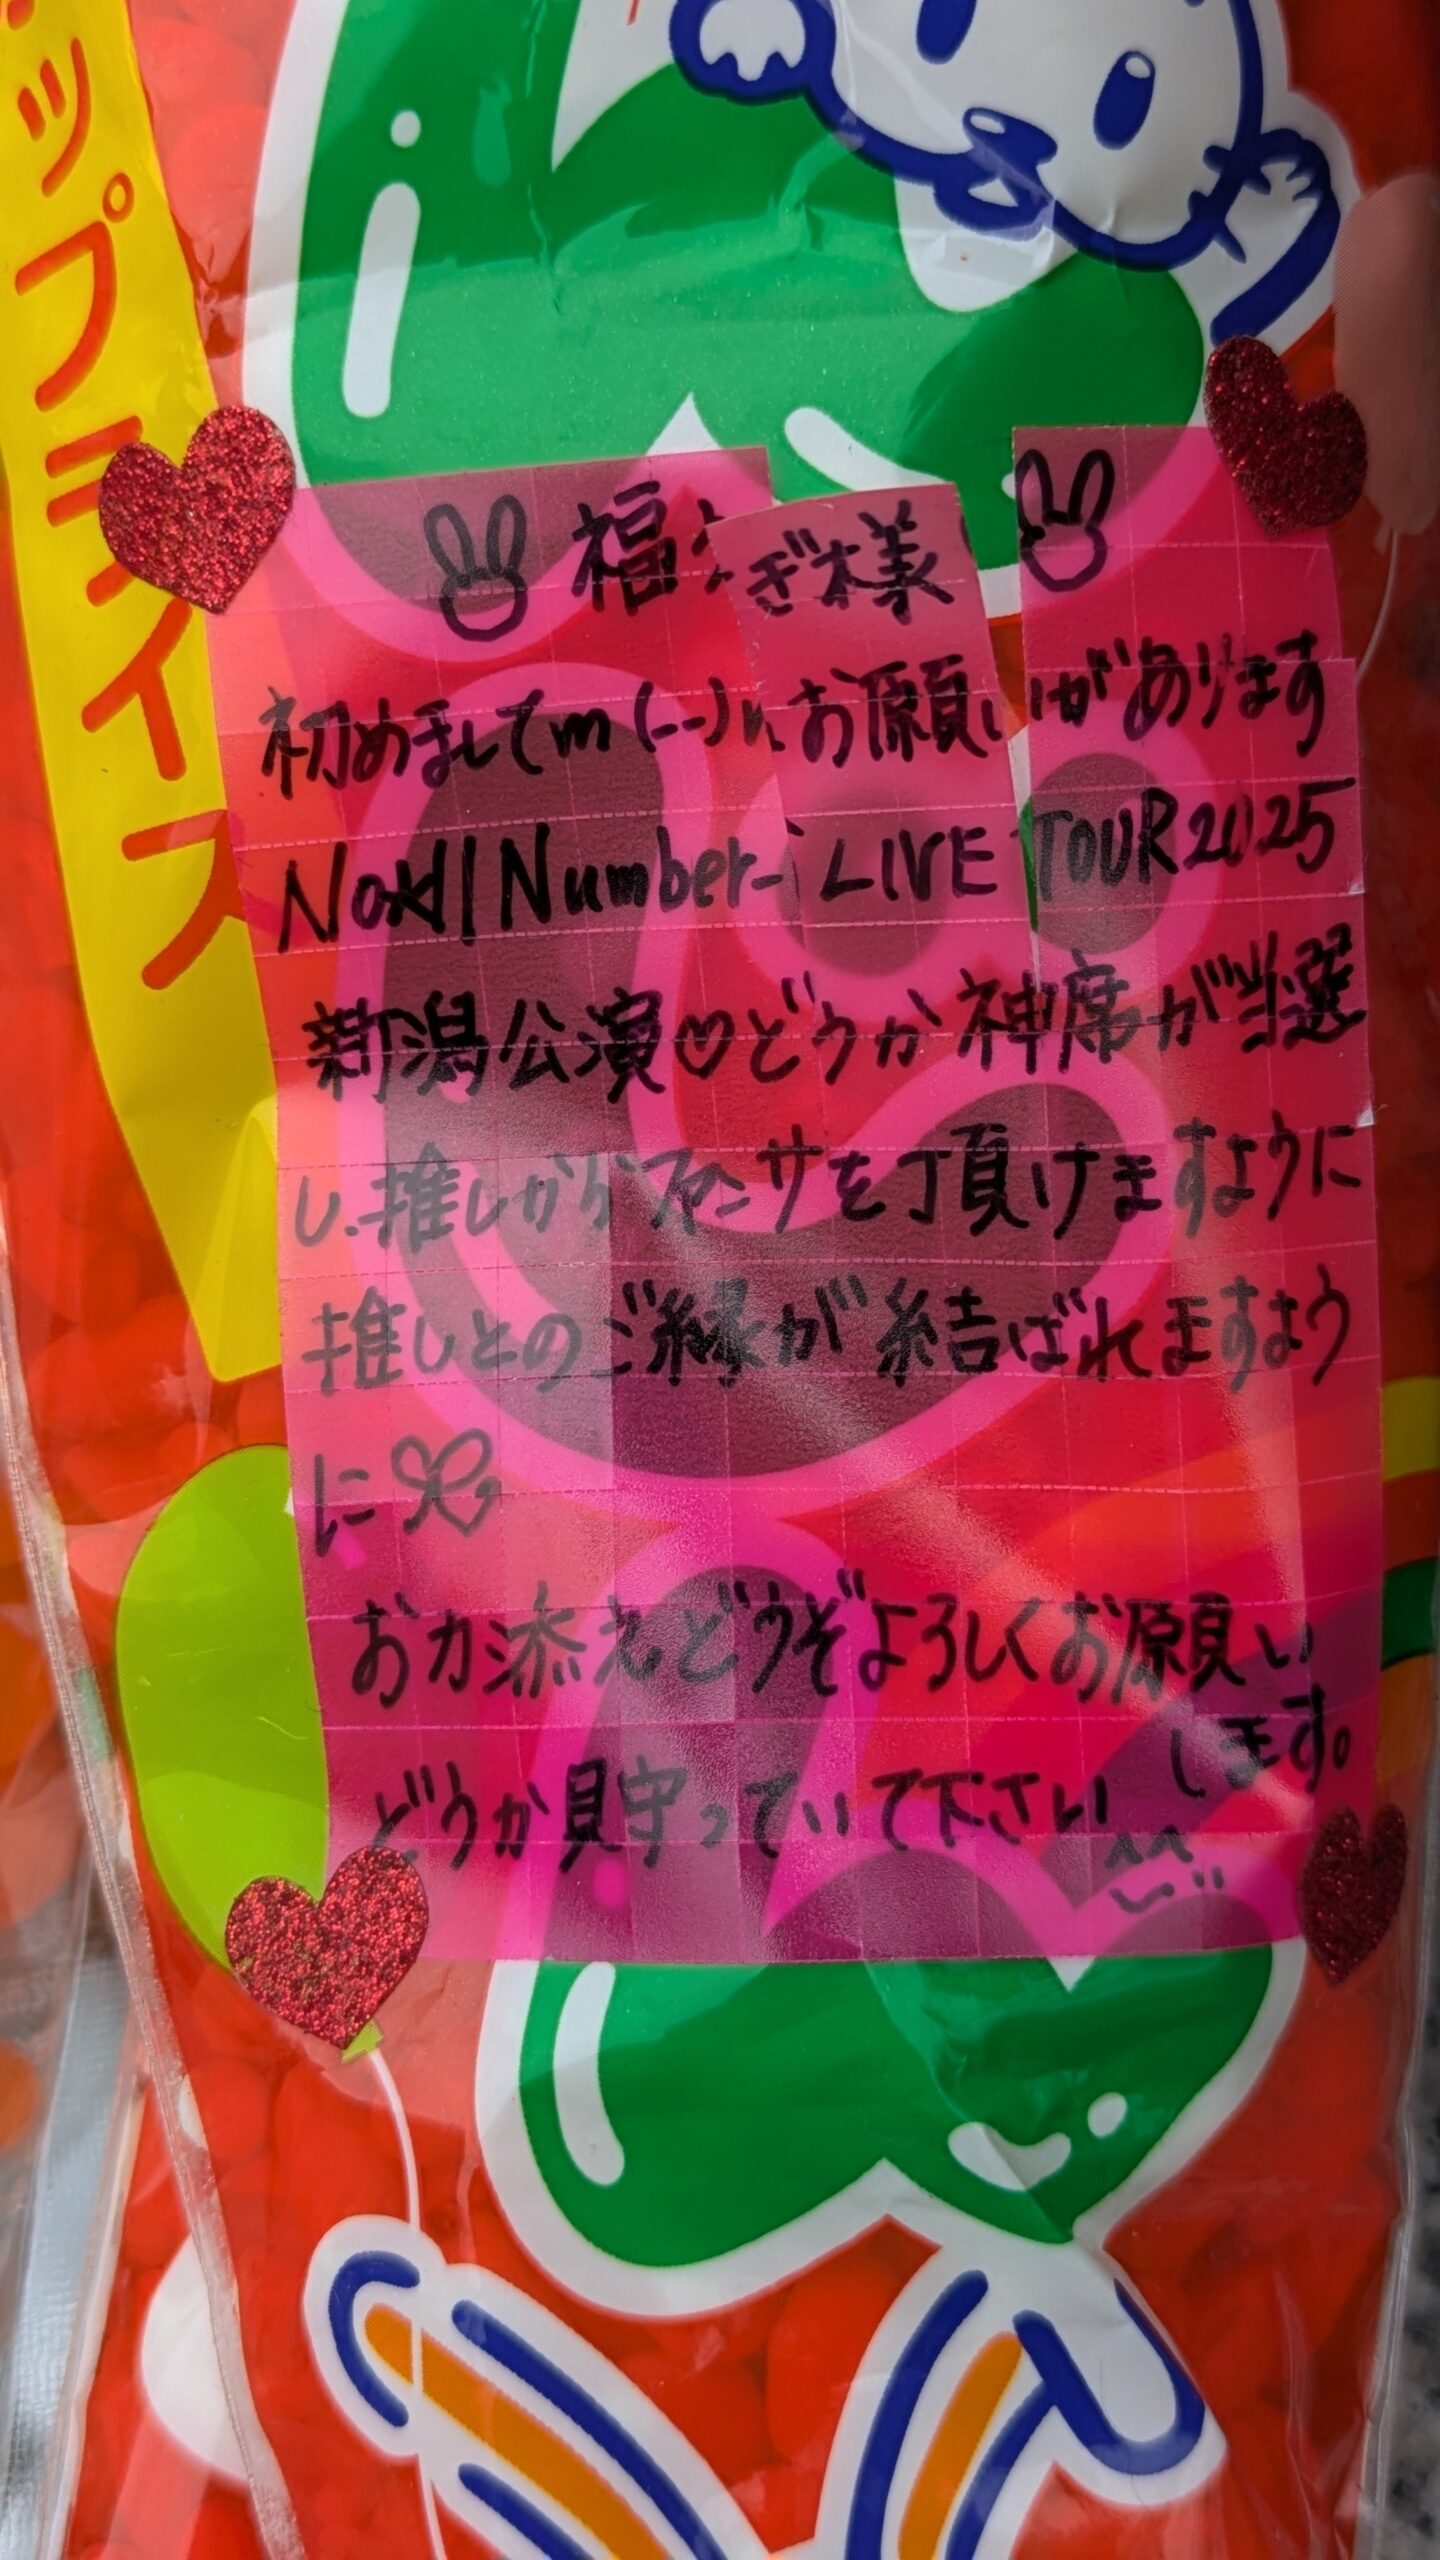 ップライス
福うさぎ様
初めましてm(--)m お願いがあります
Number_i LIVE TOUR 2025
新潟公演♡どうか神席が当選
し、推しからファンサを頂けますように
推しとのご縁が結ばれますよう
に
お力添えどうぞよろしくお願い
します。
どうか見守っていて下さい